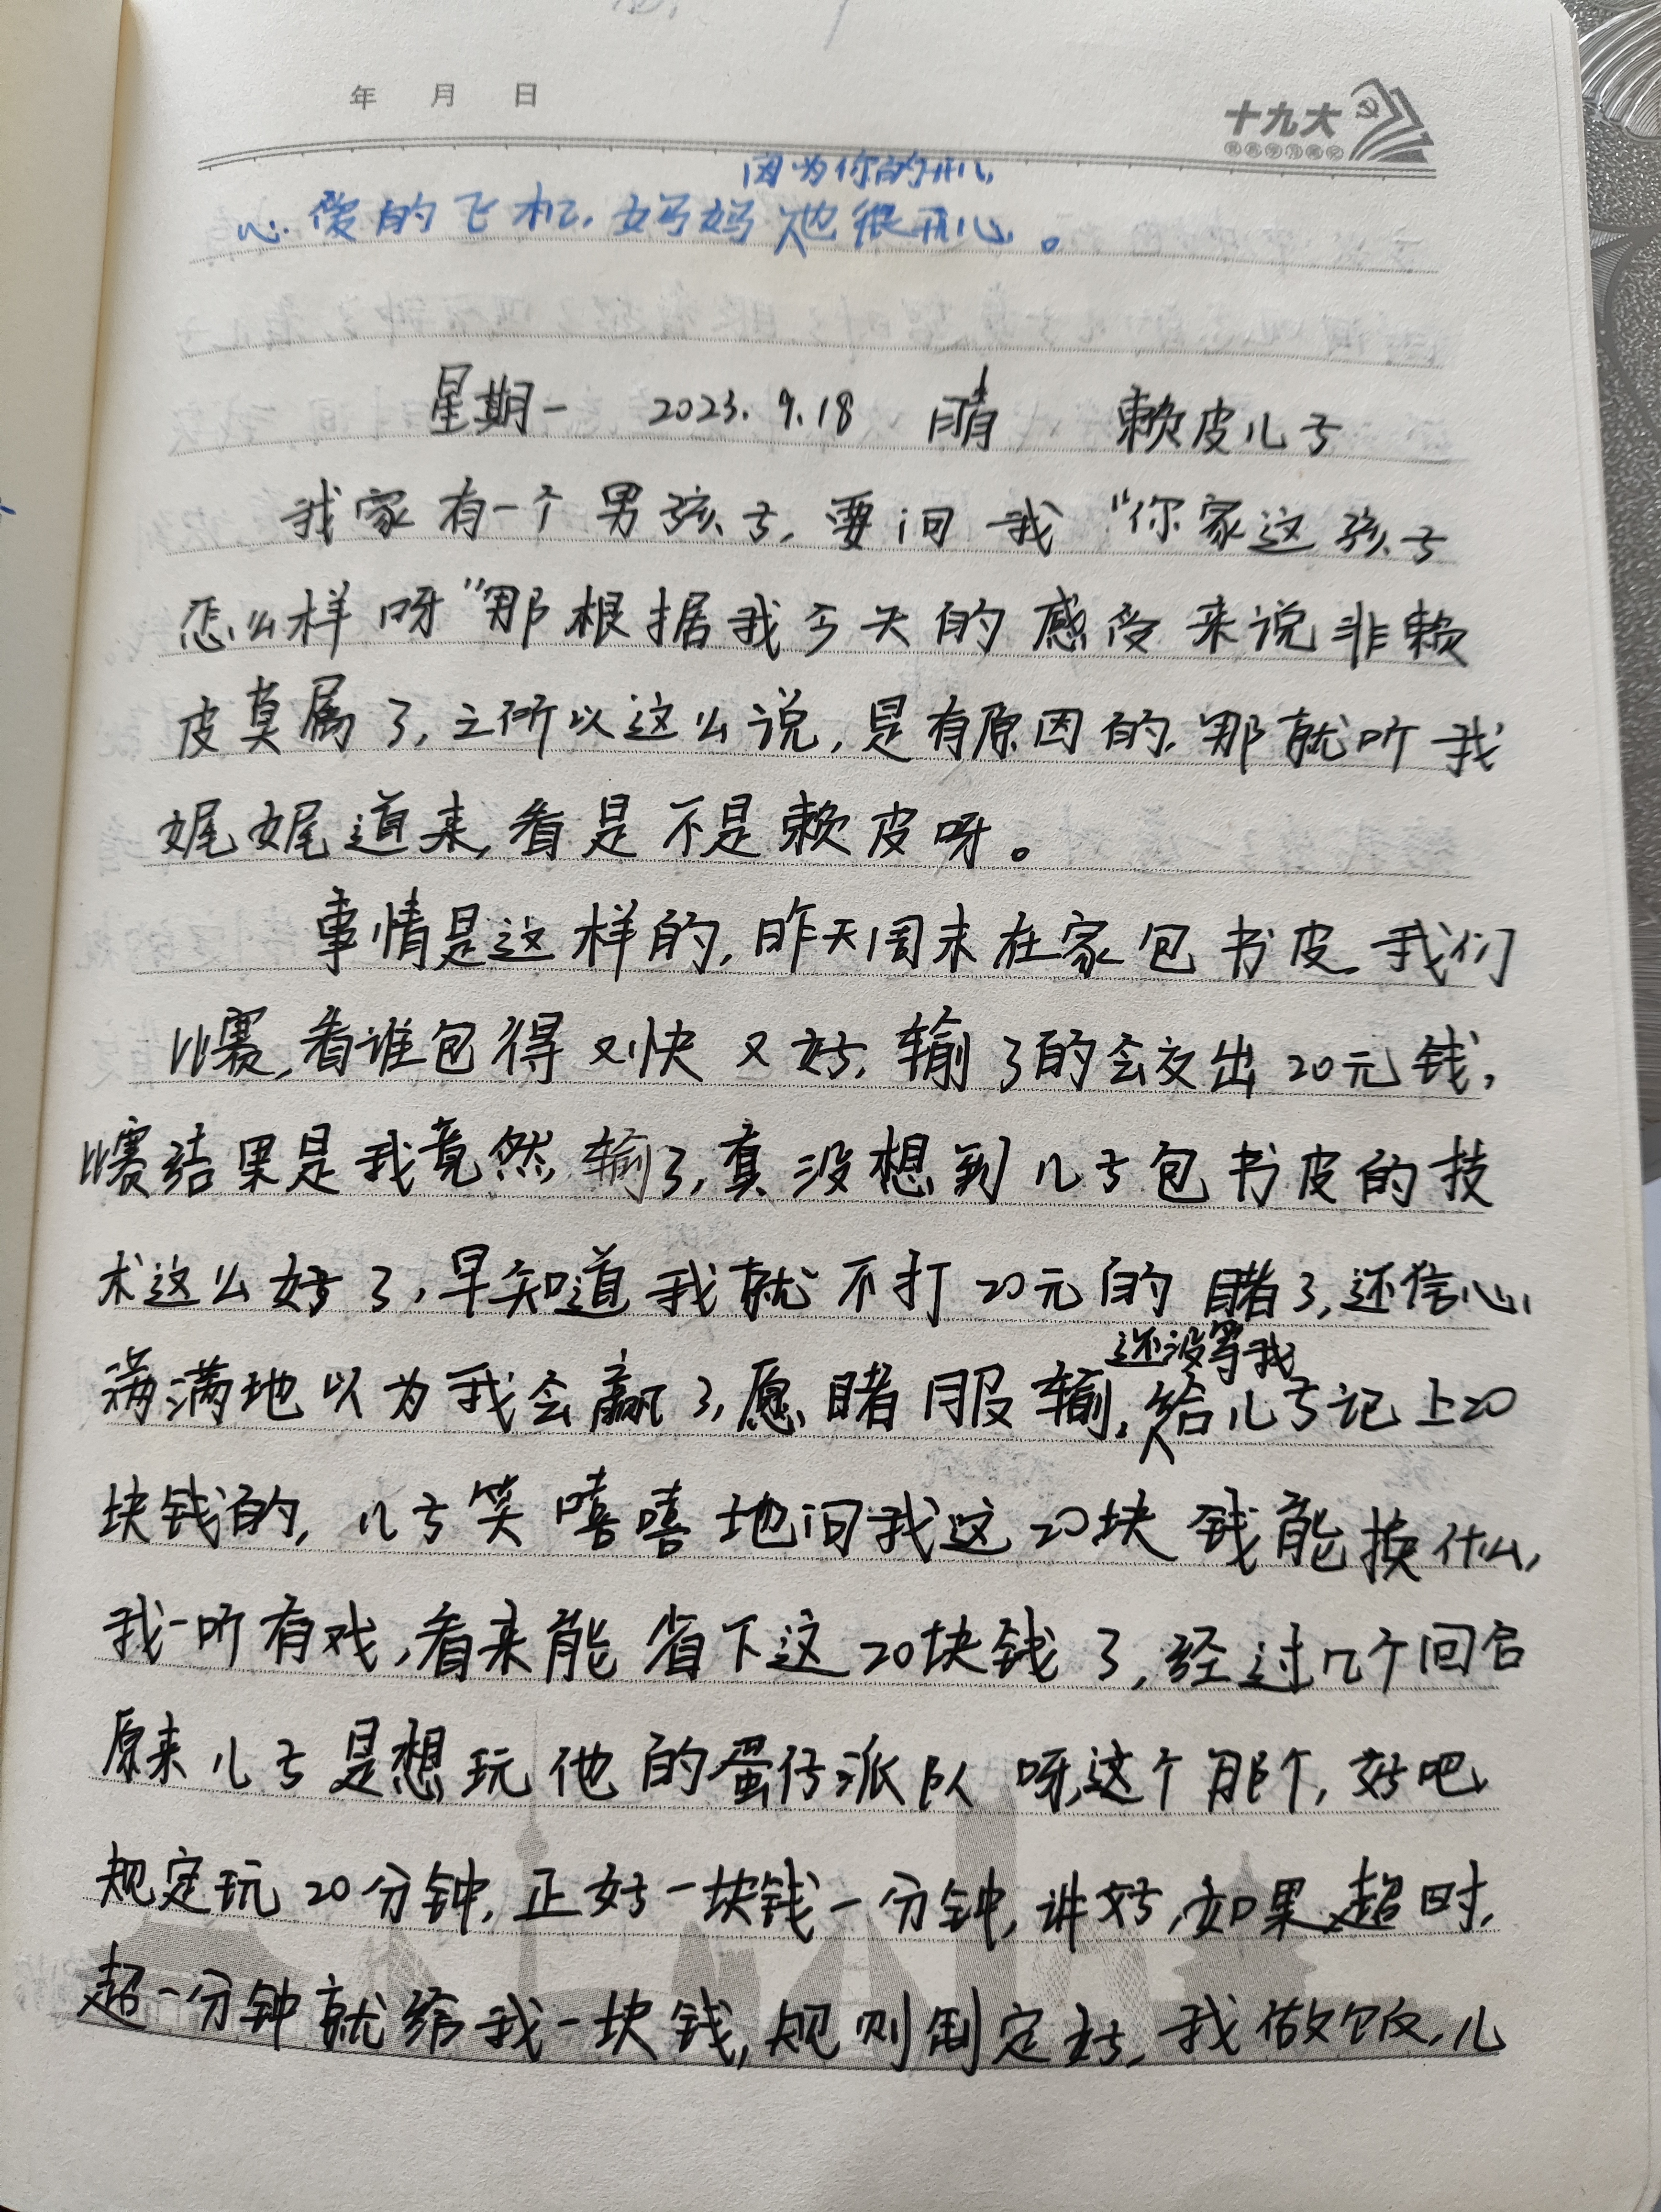 年 月 日
十九大
因为你的开心
心爱的飞机,妈妈也很开心。
星期一 2023.9.18 晴 赖皮儿子
我家有一个男孩子,要问我“你家这孩子
怎么样呀”那根据我今天的感受来说非赖
皮莫属了,之所以这么说,是有原因的,那就听我
娓娓道来,看是不是赖皮呀。
事情是这样的,昨天周末在家包书皮,我们
比赛,看谁包得又快又好,输了的会交出20元钱,
比赛结果是我竟然输了,真没想到儿子包书皮的技
术这么好了,早知道我就不打20元的睹了,还信心
满满地以为我会赢了,愿睹服输,给儿子记上20
还没等我
块钱的,儿子笑嘻嘻地问我这20块钱能换什么,
我一听有戏,看来能省下这20块钱了,经过几个回合
原来儿子是想玩他的蛋仔派队呀,这个那个,好吧
规定玩20分钟,正好一块钱一分钟,讲好,如果超时,
超一分钟就给我一块钱,规则制定好,我做饭,儿